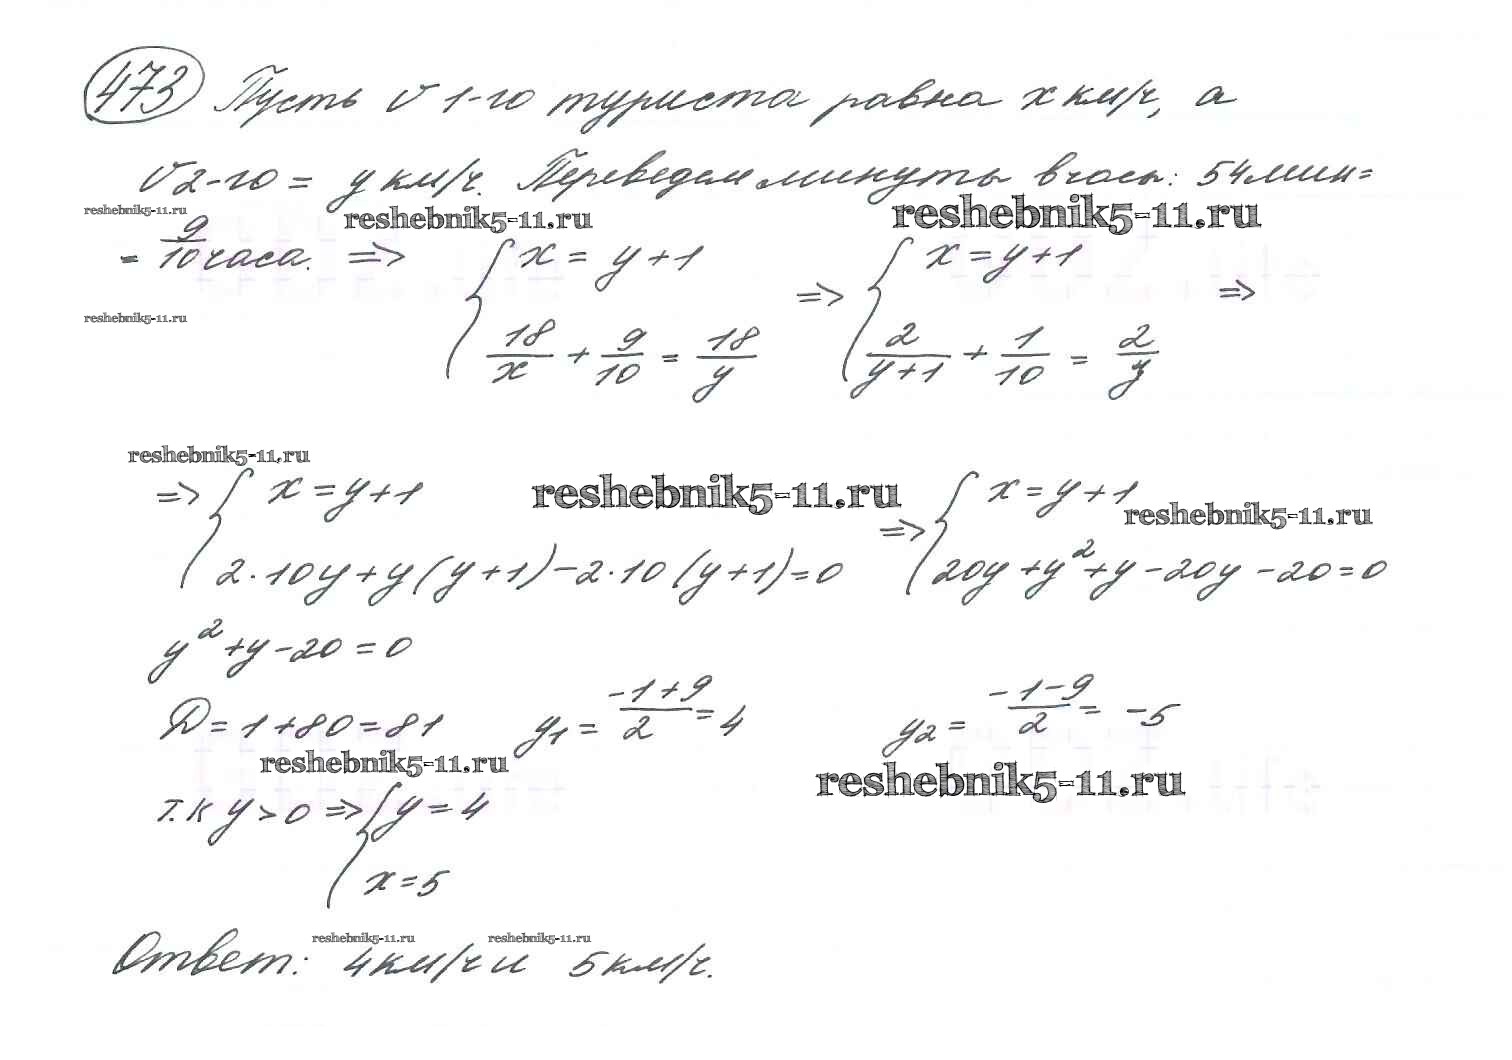 473 Пусть v 1-го туриста равна x км/ч, а
v 2-го = y км/ч. Переведем минуты в часы: 54 мин =
reshebnik5-11.ru reshebnik5-11.ru reshebnik5-11.ru
= 9/10 часа. => { x = y + 1 => { x = y + 1 =>
reshebnik5-11.ru
18/x + 9/10 = 18/y 2/(y+1) + 1/10 = 2/y
reshebnik5-11.ru
=> { x = y + 1 reshebnik5-11.ru => { x = y + 1
reshebnik5-11.ru
2·10y + y(y+1) - 2·10(y+1) = 0 20y + y² + y - 20y - 20 = 0
y² + y - 20 = 0
D = 1 + 80 = 81 y₁ = (-1+9)/2 = 4 y₂ = (-1-9)/2 = -5
reshebnik5-11.ru reshebnik5-11.ru
т.к y > 0 => { y = 4
x = 5
reshebnik5-11.ru reshebnik5-11.ru
Ответ: 4 км/ч и 5 км/ч.